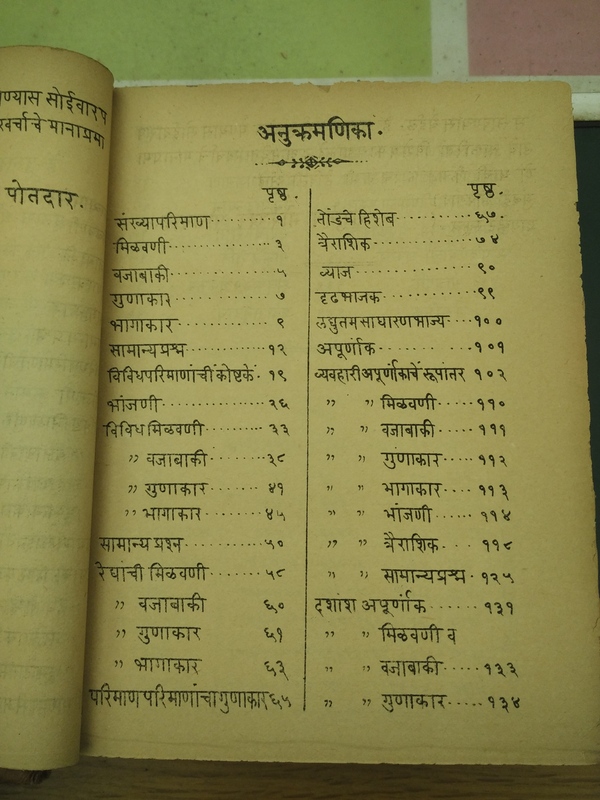 ण्यास सोईवारप
खर्चाचे मानाप्रमा
पोतदार.
अनुक्रमणिका.
पृष्ठ.
संख्यापरिमाण ········· १
मिळवणी ············ ३
वजाबाकी ··········· ५
गुणाकार ··········· ७
भागाकार ·········· ९
सामान्यप्रश्न ········· १२
विविधपरिमाणांचीं कोष्टकें. १९
भांजणी ··········· २६
विविध मिळवणी ······· ३३
,, वजाबाकी ······· ३८
,, गुणाकार ······· ४१
,, भागाकार ······· ४५
सामान्य प्रश्न ········ ५०
रेघांची मिळवणी ······· ५८
,, वजाबाकी ६०
,, गुणाकार ६१
,, भागाकार ६३
परिमाण परिमाणांचा गुणाकार ६५
पृष्ठ.
तोंडचे हिशेब ·········· ६७.
त्रैराशिक ··········· ७४
व्याज ············ ९०
दृढभाजक ·········· ९९
लघुतमसाधारणभाज्य ···१००
अपूर्णांक ········ १०१
व्यवहारीअपूर्णांकाचें रूपांतर १०२
,, ,, मिळवणी ····· ११०
,, ,, वजाबाकी ···· १११
,, ,, गुणाकार ···· ११२
,, ,, भागाकार ···· ११३
,, ,, भांजणी ····· ११४
,, ,, त्रैराशिक ··· ११८
,, ,, सामान्यप्रश्न · १२५
दशांश अपूर्णांक ······ १३१
,, ,, मिळवणी व
,, ,, वजाबाकी ····· १३३
,, ,, गुणाकार ····· १३४